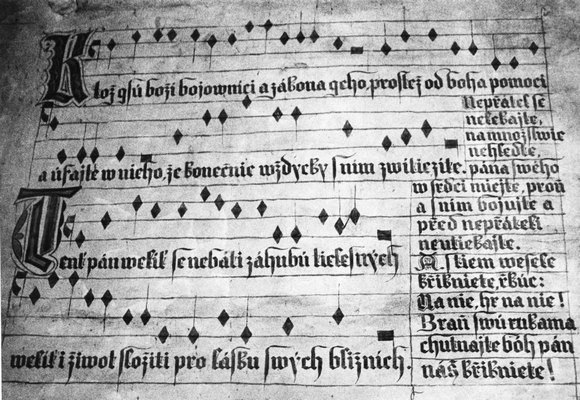 Ktož gsú boží bojowníci a zákona geho, prostež od boha pomoci
a úfajte w nieho, že konečnie wždycky s ním zwítiezíte.
Tent pán welik se nebáti záhubú tielestných
weliki život složiti pro lásku swých bližních.
Nepřátel se
nelekajte,
na množstwie
nehleďte,
pána swého
w srdci miejte, proň
a s ním bojujte a
před nepřáteli
neutiekajte.
A s tiem wesele
křikniete, řkúc:
Na nie, hr na nie!
Braň swú rukama
chutnajte bóh pán
náš křikniete!